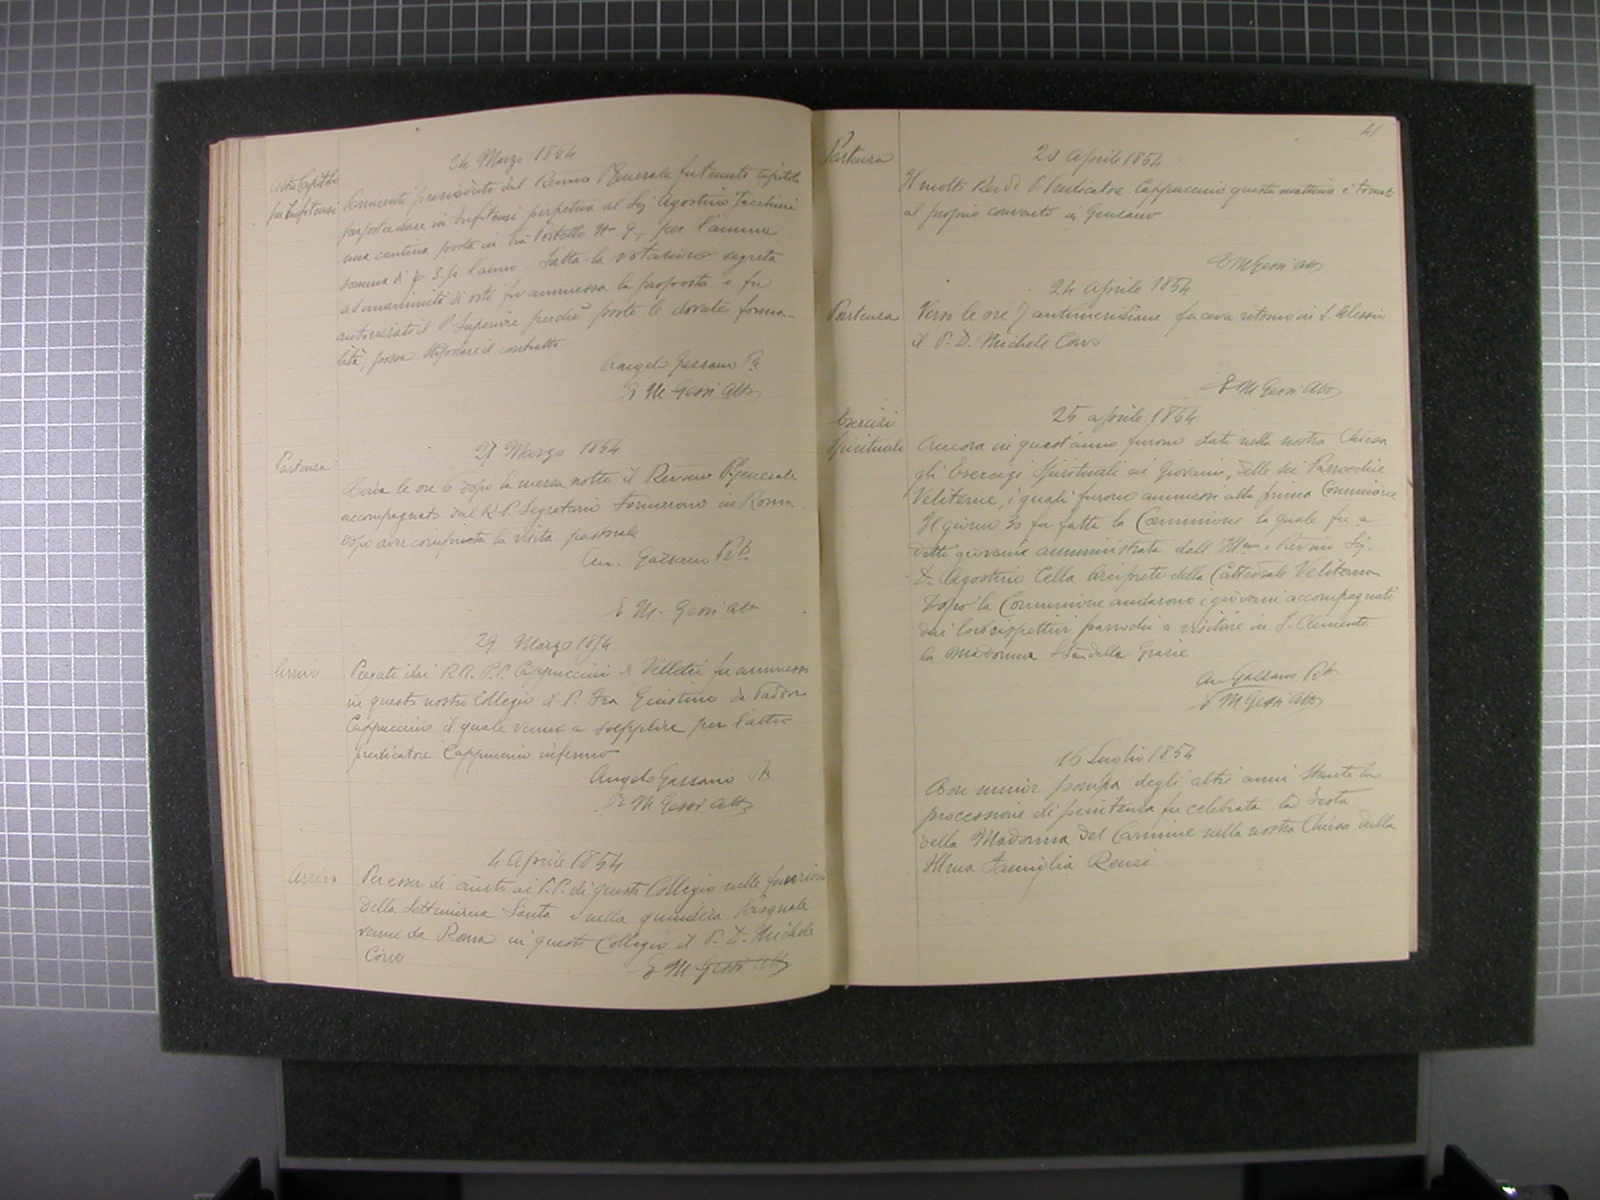 24 Marzo 1854
Atto Capitolare
per Enfiteusi
Parimenti presieduto dal Revmo P. Generale fu tenuto Capitolo
per poter dare in Enfiteusi perpetua al Sig Agostino Jacchini
una cantina posta in Via Portello N 9, per l'annua
somma di 3 l'anno. Fatta la votazione segreta
ad unanimità di voti fu ammessa la proposta e fu
autorizzato il P. Superiore perchè poste le dovute forma-
lità, possa stipolare il contratto
Angelo Gassano Pt
E M Gessi Atto
27 Marzo 1854
Partenza
Circa le ore 6 dopo la mezza notte il Revmo P. Generale
accompagnato dal R. P. Segretario tornarono in Roma
dopo aver compiuta la visita pastorale
An. Gassano Pto
E M. Gessi Atto
29 Marzo 1854
Arrivo
Pregati dai R.R. P.P. Cappuccini di Velletri fu ammesso
in questo nostro Collegio il P. Fra Giustino da
Cappuccino il quale venne a supplire per l'altro
predicatore Cappuccino infermo
Angelo Gassano Pto
E M Gessi Atto
4 Aprile 1854
Arrivo
Per esser di aiuto ai P.P. di questo Collegio nelle funzioni
della Settimana Santa e nella quindicina Pasquale
venne da Roma in questo Collegio il P. D. Michele
Corvo
E M Gessi Atto
41
20 Aprile 1854
Partenza
Il molto Revdo P. Predicatore Cappuccino questa mattina è tornato
al proprio convento di Genzano
E M Gessi Atto
24 Aprile 1854
Partenza
Verso le ore 7 antimeridiane faceva ritorno in S. Alessio
il P. D. Michele Corvo
E M Gessi Atto
25 aprile 1854
Esercizi
Spirituali
Ancora in quest'anno furono dati nella nostra Chiesa
gli Esercizi Spirituali ai Giovani, delle sei Parrocchie
Veliterne, i quali furono ammessi alla prima Comunione
Il giorno 30 fu fatta la Comunione la quale fu a
detti giovani amministrata dall'Illmo e Revmo Sig.
D. Agostino Cella Arciprete della Cattedrale Veliterna
Dopo la Comunione andarono i giovani accompagnati
dai loro rispettivi parrochi a visitare in S. Clemente
la Madonna SSma delle Grazie
An Gassano Pto
E M Gessi Atto
16 Luglio 1854
Con minor pompa degli altri anni stante la
processione di penitenza fu celebrata la festa
della Madonna del Carmine nella nostra Chiesa dalla
Illma Famiglia Renzi